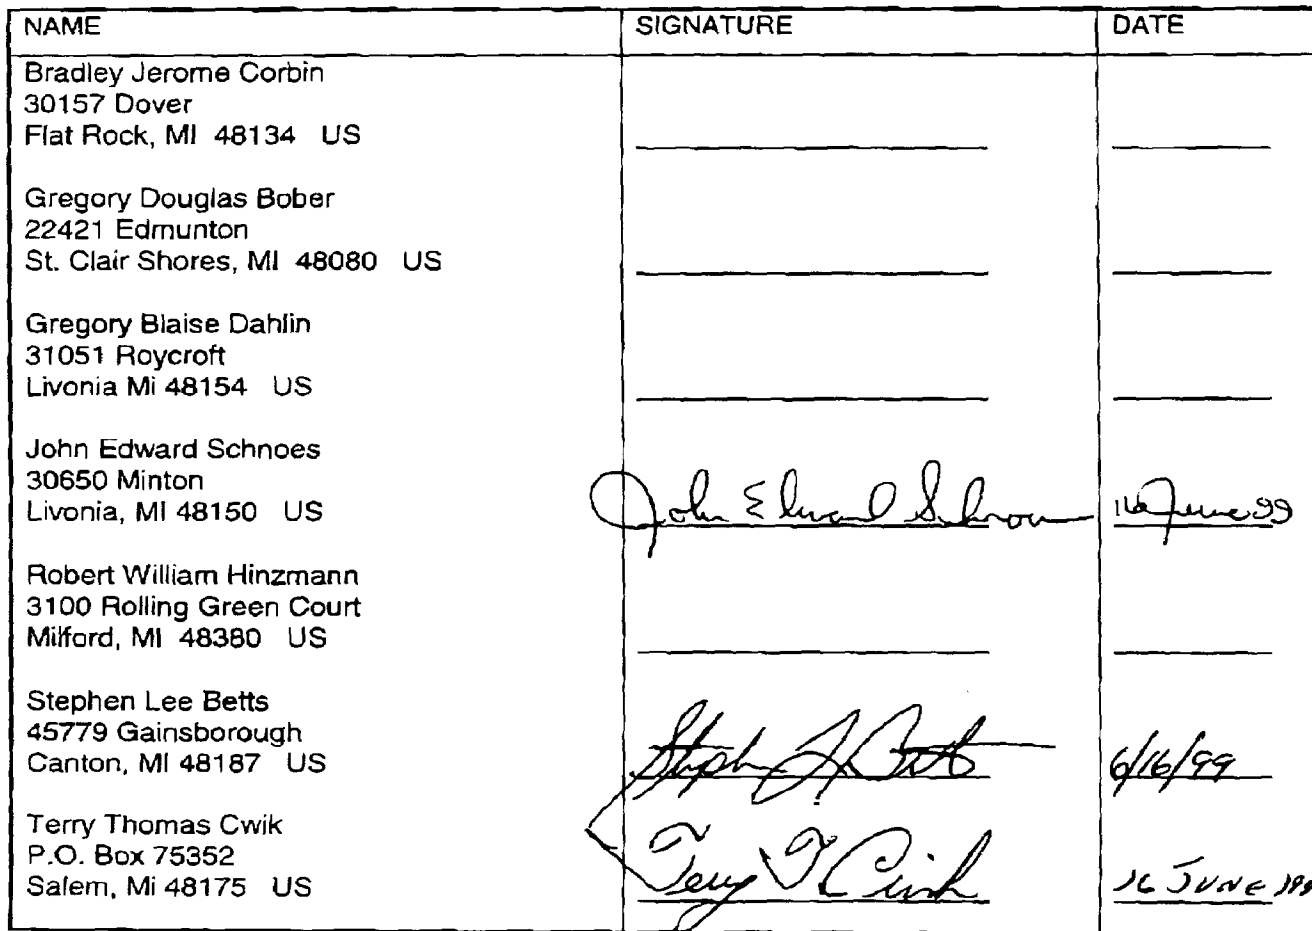 NAME SIGNATURE DATE
Bradley Jerome Corbin
30157 Dover
Flat Rock, MI 48134 US
Gregory Douglas Bober
22421 Edmunton
St. Clair Shores, MI 48080 US
Gregory Blaise Dahlin
31051 Roycroft
Livonia Mi 48154 US
John Edward Schnoes
30650 Minton
Livonia, MI 48150 US John Edward Schnoes 16 June 99
Robert William Hinzmann
3100 Rolling Green Court
Milford, MI 48380 US
Stephen Lee Betts
45779 Gainsborough
Canton, MI 48187 US Stephen L Betts 6/16/99
Terry Thomas Cwik
P.O. Box 75352
Salem, Mi 48175 US Terry T Cwik 16 JUNE